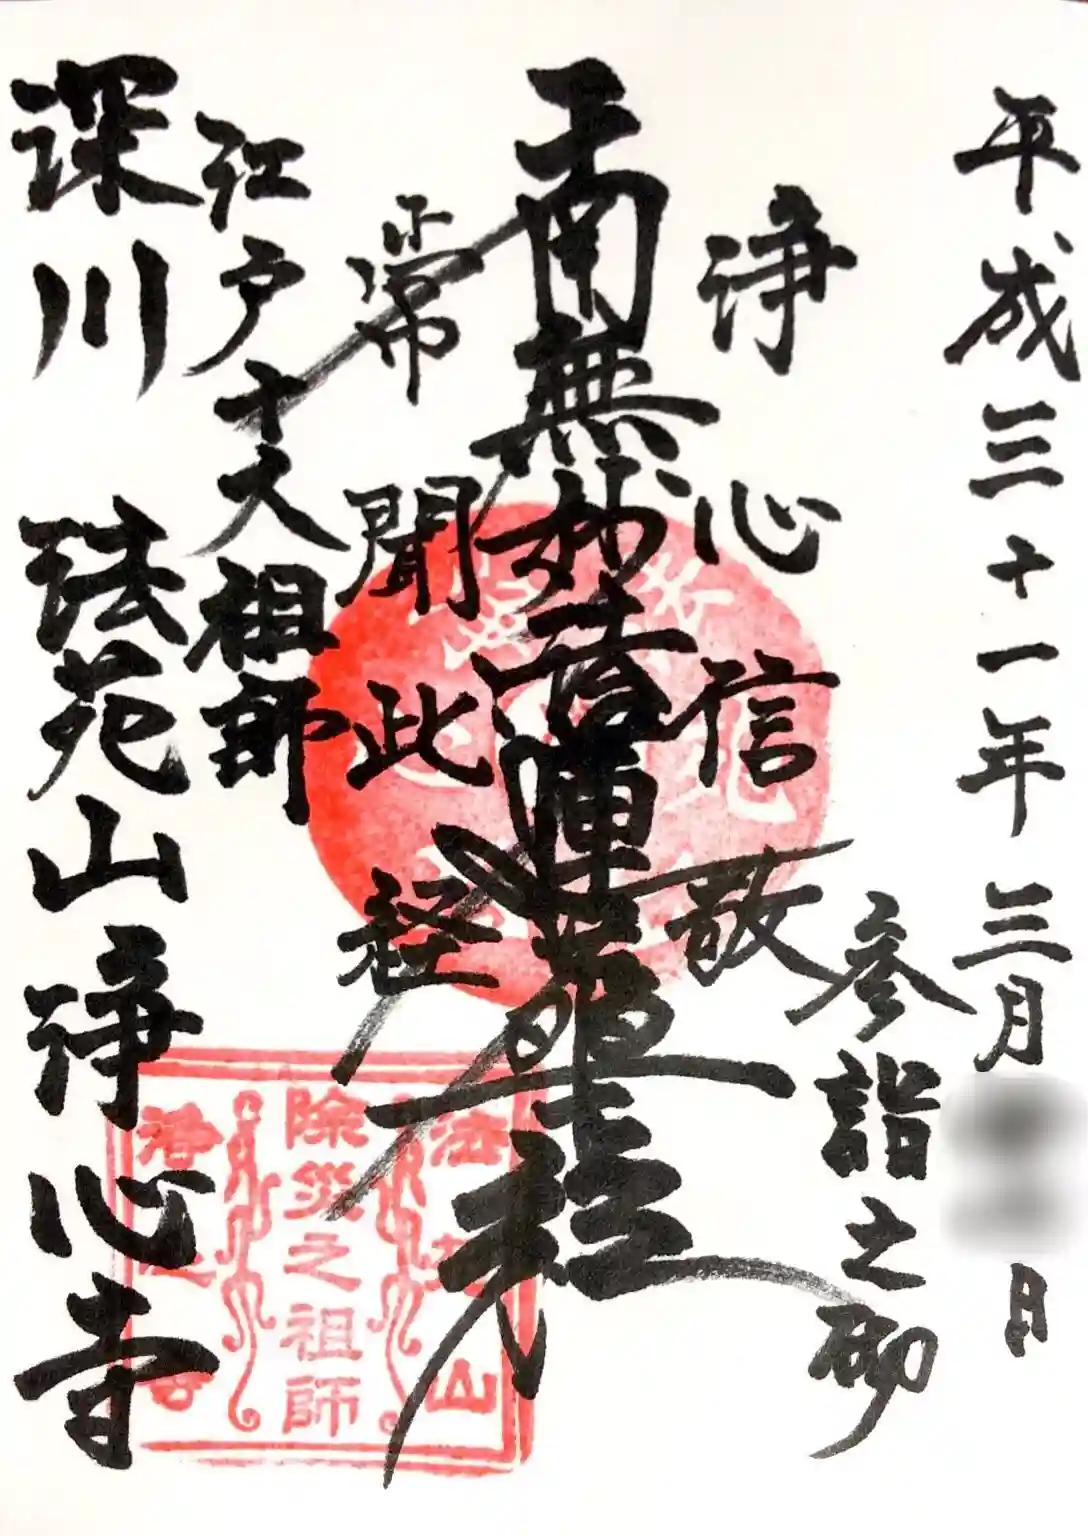 平成三十一年三月 日
参詣之砌
浄心信敬
南無妙法蓮華経
常聞此経
江戸十大祖師
深川 法苑山浄心寺
除災之祖師
法苑山
浄心寺